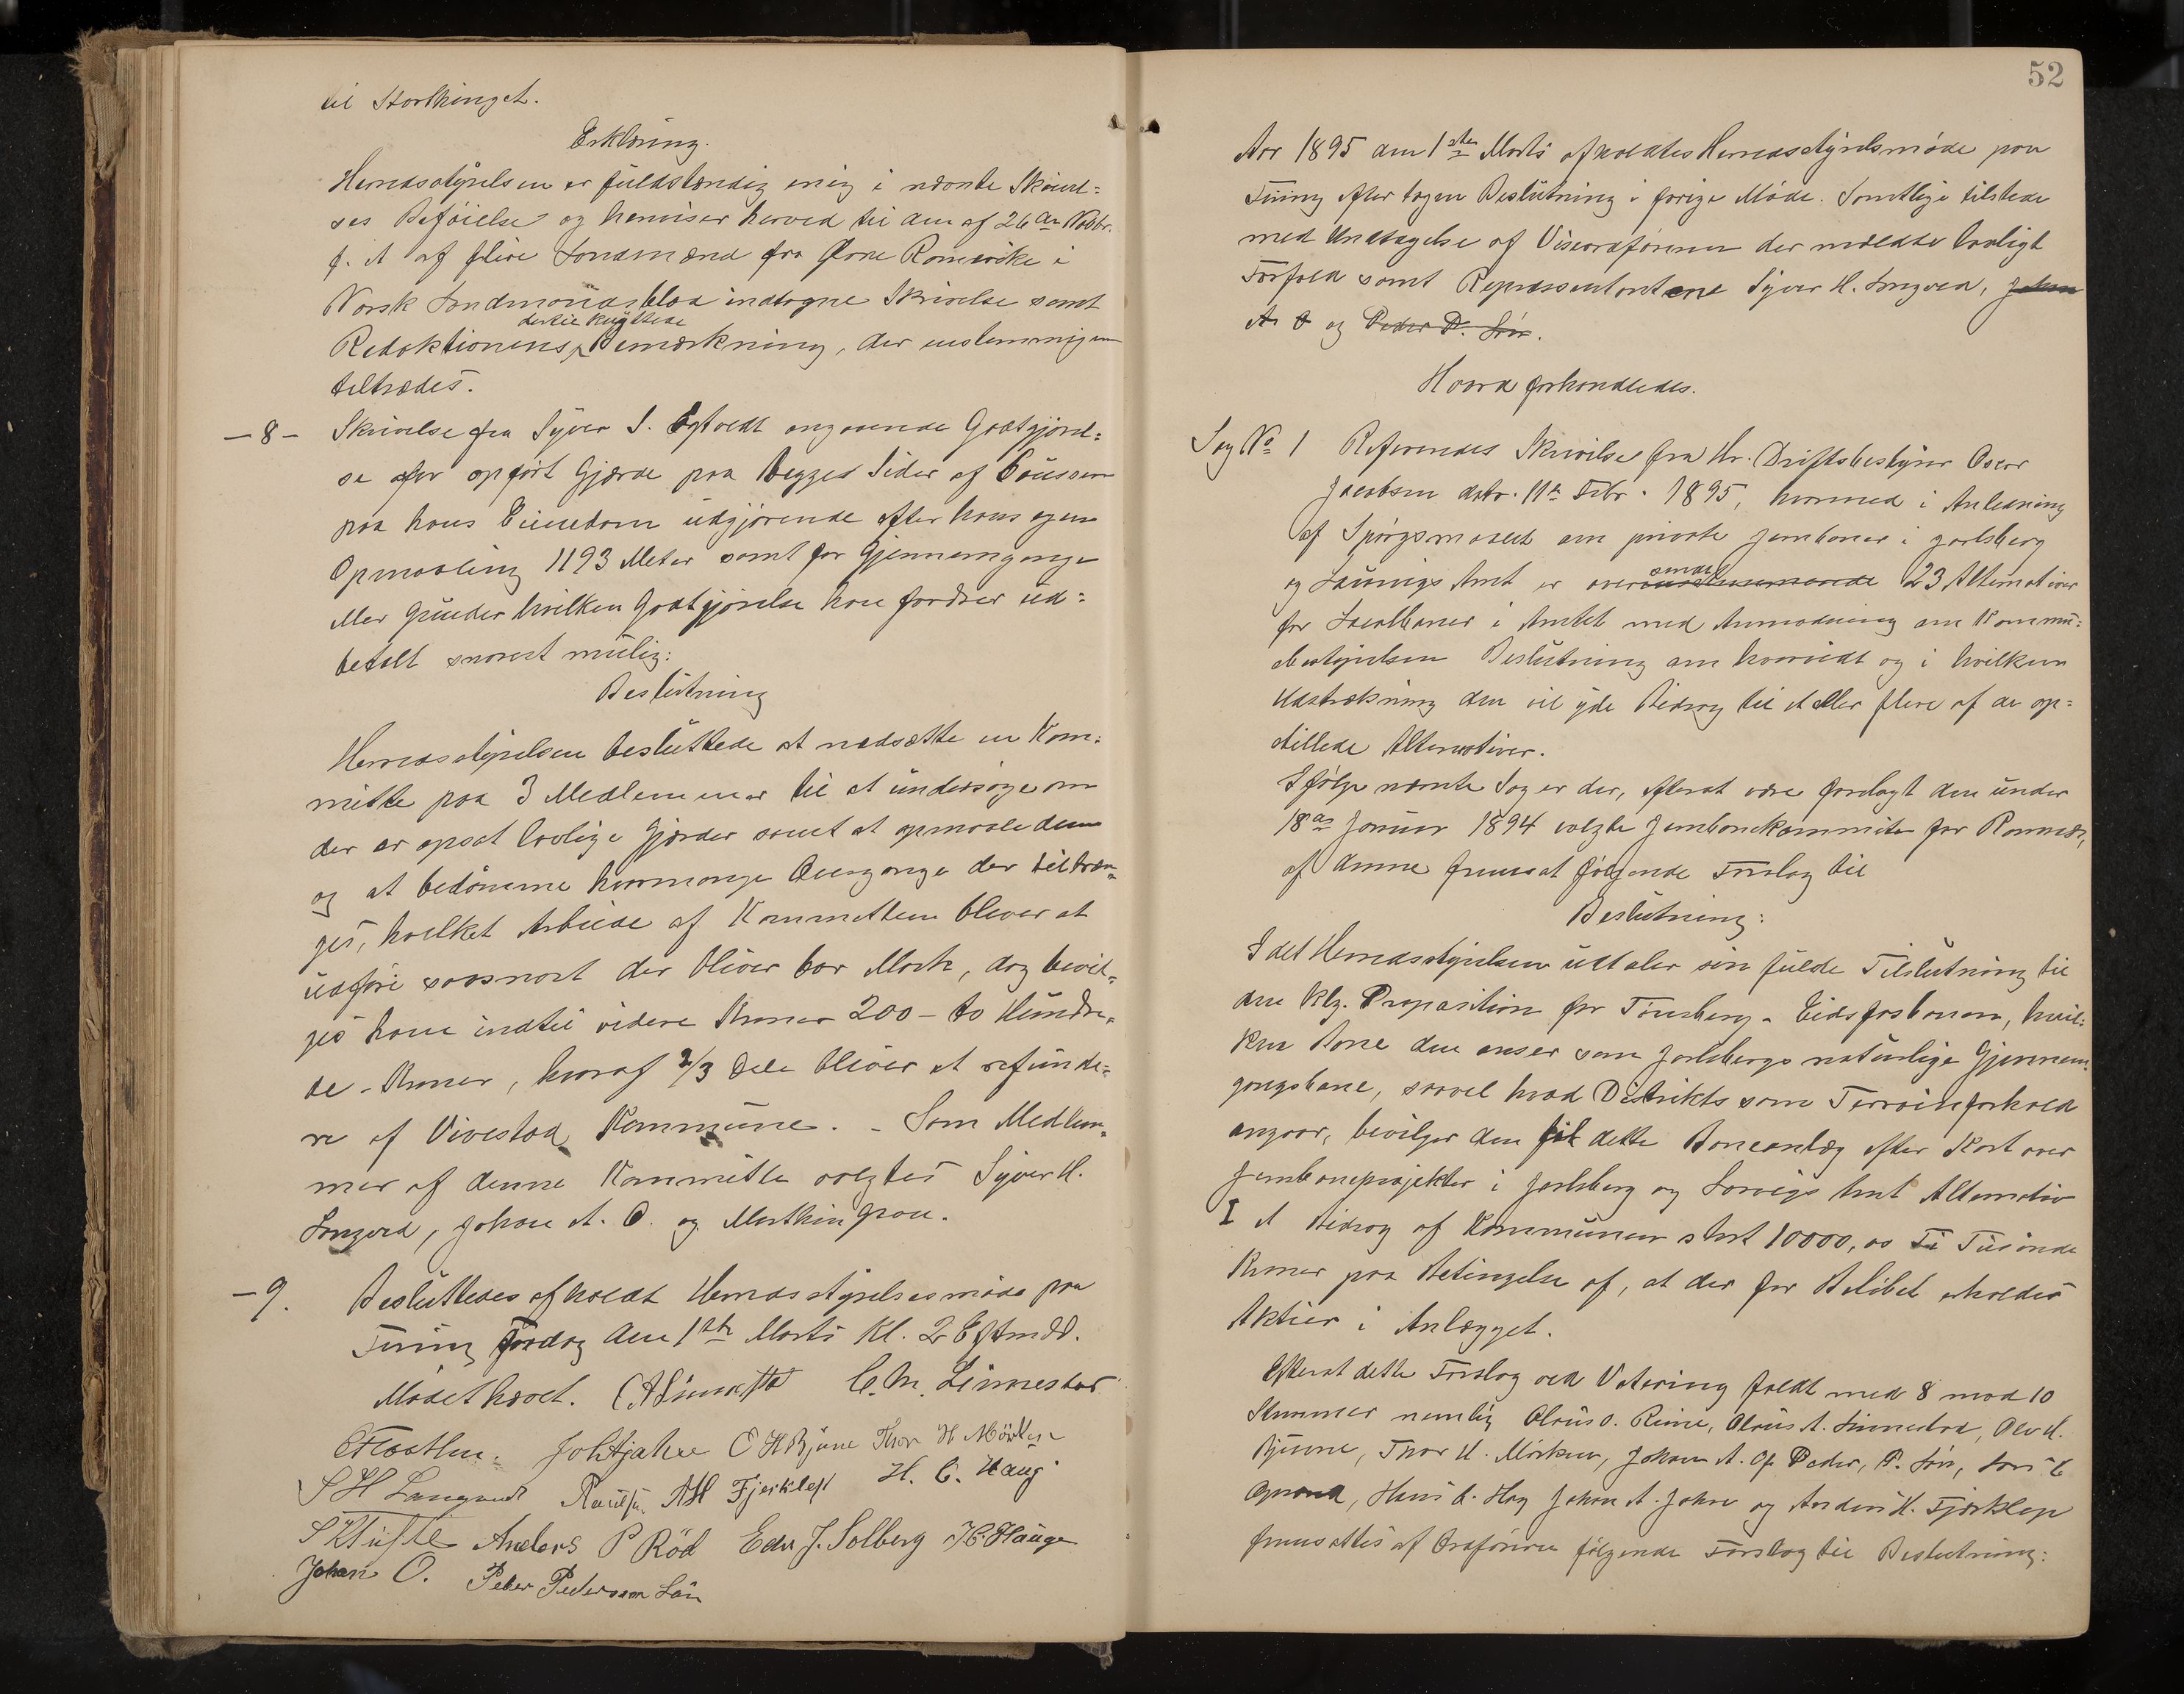 til Storthinget.
Erklæring.
Herredsstyrelsen er fuldstændig enig i nævnte Skrivel=
ses Beføielse og henviser herved til den af 26de Novbr.
f. A af flere Landmænd fra Øvre Romerike i
Norsk Landmandsblad indtagne Skrivelse samt
dertil knyttede
Redaktionens Bemærkning, der enstemmigen
tiltrædes.
- 8 - Skrivelse fra Syver S. angaaende Godtgjørel=
se for opført Gjærde paa begges Sider af
paa hans Eiendom udgjørende efter hans egen
Opmaaling 1193 Meter samt for Gjennemgange
eller Grinder hvilken Godtgjørelse han fordrer ud=
betalt snarest mulig:
Beslutning
Herredsstyrelsen besluttede at nedsætte en Kom=
mitte paa 3 Medlemmer til at undersøge om
der er opsat lovlige Gjærder samt at opmaale dem
og at bedømme hvormange Overgange der tiltræn=
ges, hvilket Arbeide af Kommitteen bliver at
udføre saasnart der bliver bar Mark, dog bevil=
ges ham indtil videre Kroner 200 - to Hundre=
de - Kroner, hvoraf 2/3 Dele bliver at refunde=
re af Vivestad Kommune. - Som Medlem=
mer af denne Kommitte valgtes Syver H.
Langved, Johan A. O. og Mathis Graae.
- 9. Besluttedes afholdt Herredsstyrelsesmøde paa
Fredag den 1ste Marts Kl. 2 Eftmdd.
Mødet hævet. C. M. Linnestad
Joh Ajahre O H Bjune Thor H Mörken
S H Langved A H Fjerklep H. C. Haug
Anders P Röd Edv J. Solberg H. Hauge
Johan O. Peder Pedersen Løn
52
Aar 1895 den 1ste Marts afholdtes Herredsstyrelsmøde paa
efter tagen Beslutning i forige Møde. Samtlige tilstede
med Undtagelse af Viseordføreren der meldte lovligt
Forfald samt Representantene Syver H. Langved, Johan
A O og Peder P. Løn.
Hvora forhandledes.
Sag No 1 Refereredes Skrivelse fra Hr. Driftsbestyrer Oscar
Jacobsen datr. 11te Febr. 1895, hvormed i Anledning
af Spørgsmaalet om private Jernbaner i Jarlsberg
og Laurvigs Amt er over sendt 23 Alternativer
for Localbaner i Amtet med Anmodning om Kommu=
nebestyrelsen Beslutning om hvorvidt og i hvilken
Udstrækning den vil yde Bidrag til et eller flere af de op=
stillede Alternativer.
Ifølge nævnte Sag er der, efterat være forelagt den under
18de Januar 1894 valgte Jernbanekommite for Ramnæs,
af denne fremsat følgende Forslag til
Beslutning:
Idet Herredsstyrelsen udtaler sin fulde Tilslutning til
den Klg. Proposition for Tønsberg - Eidsfosbanen, hvil=
ken Bane den anser som Jarlsbergs naturlige Gjennem=
gangsbane, saavel hvad Distrikts som Terrainforhold
angaar, bevilger den til dette Baneanlæg efter Kart over
Jernbaneprojekter i Jarlsberg og Larviks Amt Alternativ
I et Bidrag af Kommunen stort 10000, os Ti Tusinde
Kroner paa Betingelse af, at der for Beløbet erholdes
Aktier i Anlægget.
Efterat dette Forslag ved Votering faldt med 8 mod 10
Stemmer nemlig Olaus O. Revne, Olaus A. Linnestad, Ole H.
Bjune, Thor H. Mörken, Johan A. O. Peder, P. Løn, Lars C
Hans C. Hag Johan A. Jahre og Anders H. Fjærklep
fremsattes af Ordføreren følgende Forslag til Beslutning: